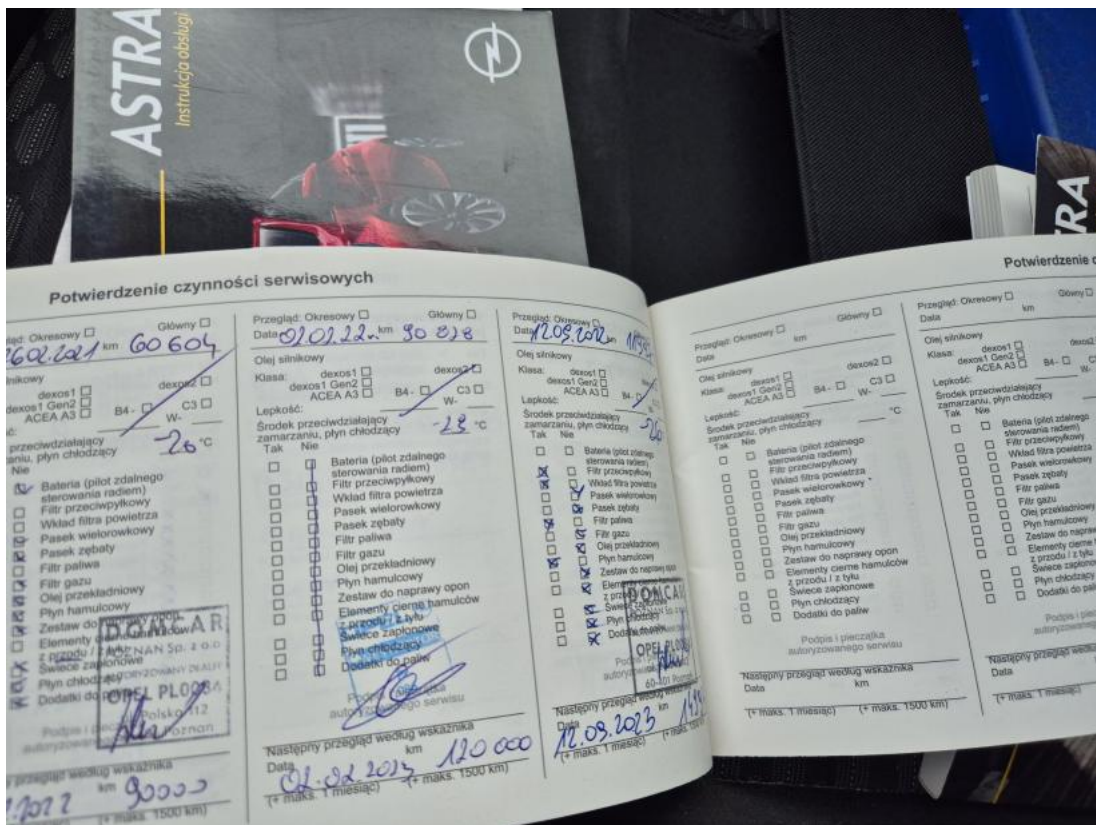 ASTRA
Instrukcja obsługi
RA
Potwierdzenie czynności serwisowych
Okresowy Główny
2602.2021 km 60 604
dexos1 dexos2
dexos1 Gen2
ACEA A3 B4- C3
W-
przeciwdziałający
płyn chłodzący -26 °C
Nie
Bateria (pilot zdalnego
sterowania radiem)
Filtr przeciwpyłkowy
Wkład filtra powietrza
Pasek wielorowkowy
Pasek zębaty
Filtr paliwa
Filtr gazu
Olej przekładniowy
Płyn hamulcowy
Zestaw do naprawy opon
Elementy
z przodu /
Świece zapłonowe
Płyn chłodzący
Dodatki do
DOMCAR
POZNAN Sp. z o.o.
OPEL PL008A
Polska 112
Poznań
przegląd według wskaźnika
2022 km 90000
(+ maks. 1500 km)
Przegląd: Okresowy Główny
Data 02.02.22r. km 90 828
Olej silnikowy
Klasa: dexos1 dexos2
dexos1 Gen2
ACEA A3 B4- C3
Lepkość: W-
Środek przeciwdziałający
zamarzaniu, płyn chłodzący -28 °C
Tak Nie
Bateria (pilot zdalnego
sterowania radiem)
Filtr przeciwpyłkowy
Wkład filtra powietrza
Pasek wielorowkowy
Pasek zębaty
Filtr paliwa
Filtr gazu
Olej przekładniowy
Płyn hamulcowy
Zestaw do naprawy opon
Elementy cierne hamulców
z przodu / z tyłu
Świece zapłonowe
Płyn chłodzący
Dodatki do paliw
autoryzowanego serwisu
Następny przegląd według wskaźnika
Data 02.02.2023 km 120 000
(+ maks. 1 miesiąc) (+ maks. 1500 km)
Przegląd: Okresowy
Data 12.09.2022
Olej silnikowy
Klasa: dexos1
dexos1 Gen2
ACEA A3 B4-
Lepkość:
Środek przeciwdziałający
zamarzaniu, płyn chłodzący -26
Tak Nie
Bateria (pilot zdalnego
sterowania radiem)
Filtr przeciwpyłkowy
Wkład filtra powietrza
Pasek wielorowkowy
Pasek zębaty
Filtr paliwa
Filtr gazu
Olej przekładniowy
Płyn hamulcowy
Zestaw do naprawy opon
Świece zapłonowe
Płyn chłodzący
Dodatki do paliw
OPEL PL008
60-401
Następny przegląd według wskaźnika
Data 12.09.2023 km
(+ maks. 1 miesiąc)
Potwierdzenie
Przegląd: Okresowy Główny
Data km
Olej silnikowy
Klasa: dexos1 dexos2
dexos1 Gen2
ACEA A3 B4- C3
Lepkość: W-
Środek przeciwdziałający
zamarzaniu, płyn chłodzący °C
Tak Nie
Bateria (pilot zdalnego
sterowania radiem)
Filtr przeciwpyłkowy
Wkład filtra powietrza
Pasek wielorowkowy
Pasek zębaty
Filtr paliwa
Filtr gazu
Olej przekładniowy
Płyn hamulcowy
Zestaw do naprawy opon
Elementy cierne hamulców
z przodu / z tyłu
Świece zapłonowe
Płyn chłodzący
Dodatki do paliw
Podpis i pieczątka
autoryzowanego serwisu
Następny przegląd według wskaźnika
Data km
(+ maks. 1 miesiąc) (+ maks. 1500 km)
Przegląd: Okresowy Główny
Data km
Olej silnikowy
Klasa: dexos1
dexos1 Gen2
ACEA A3 B4- C3
Lepkość: W-
Środek przeciwdziałający
zamarzaniu, płyn chłodzący
Tak Nie
Bateria (pilot zdalnego
sterowania radiem)
Filtr przeciwpyłkowy
Wkład filtra powietrza
Pasek wielorowkowy
Pasek zębaty
Filtr paliwa
Filtr gazu
Olej przekładniowy
Płyn hamulcowy
Zestaw do
Elementy cierne
z przodu / z tyłu
Świece
Płyn chłodzący
Dodatki do
Podpis i
Następny przegląd według
Data
(+ maks. 1 miesiąc)